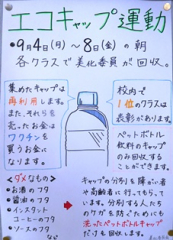 エコキャップ運動
●9月4日(月)～8日(金)の朝
各クラスで美化委員が回収。
集めたキャップは
再利用します。
また、それらを
売ったお金は
ワクチン
を買うお金に
なります。
校内で
1位のクラスは
表彰があります。
ペットボトル
飲料のキャップ
のみ回収する
ことができます。
<ダメなもの>
●お酒のフタ
●醤油のフタ
●インスタント
コーヒーのフタ
●ソースのフタ
キャップの分別を障がい者
や高齢者に行ってもらって
います。分別する人たち
のケガを防ぐためにも
売ったペットボトルキャップ
だけを回収します。